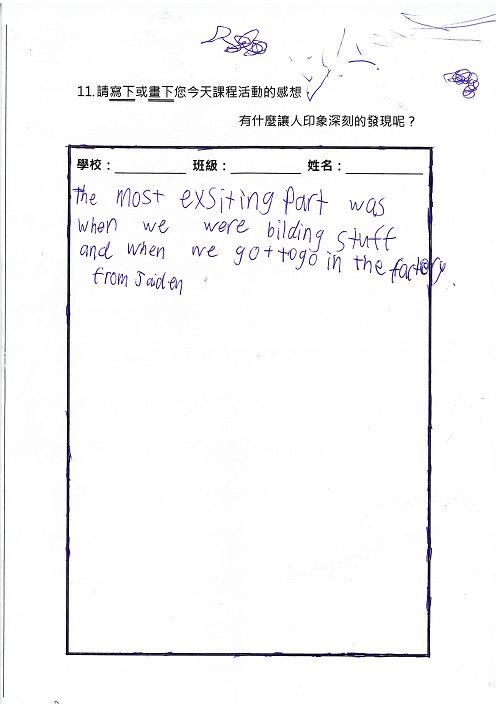 11.請寫下或畫下您今天課程活動的感想，
有什麼讓人印象深刻的發現呢？
學校：__________ 班級：__________ 姓名：__________
the most exsiting part was
when we were bilding stuff
and when we got to go in the factory
from Jaiden